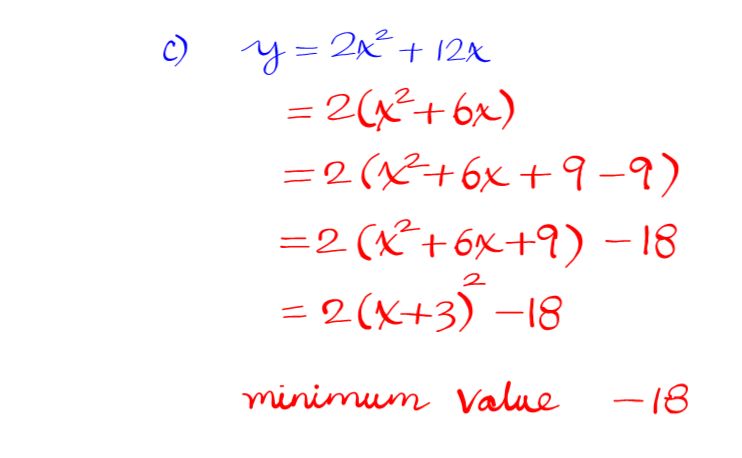 c) y = 2x² + 12x
= 2(x² + 6x)
= 2(x² + 6x + 9 – 9)
= 2(x² + 6x + 9) – 18
= 2(x+3)² – 18
minimum value – 18